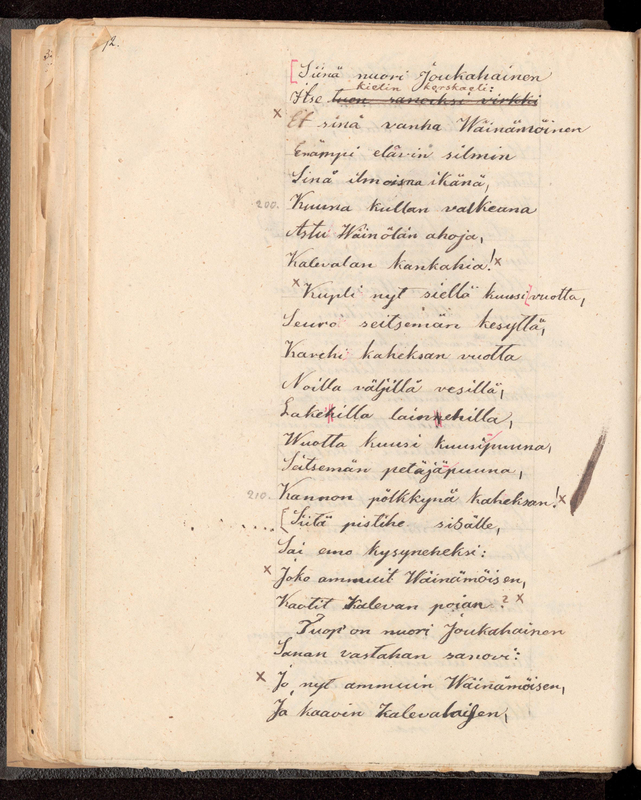 12.
Siinä nuori Joukahainen
kielin kerskaeli:
Itse tuon sanoiksi virkki
× Et sinä vanha Wäinämöinen
Enämpi elävin silmin
Sinä ilmoisna ikänä,
200. Kuuna kullan valkeana
Astu Wäinölän ahoja,
Kalevalan kankahia! ×
× Kupli nyt siellä kuusi vuotta,
Seuro seitsemän kesyttä,
Karehi kaheksan vuotta
Noilla väljillä vesillä,
Lakehilla lainnehilla,
Wuotta kuusi kuusipuuna,
Seitsemän petäjäpuuna,
210. Kannon pölkkynä kaheksan! ×
Siitä pistihe sisälle,
Sai emo kysyneheksi:
× Joko ammuit Wäinämöisen,
Kaotit Kalevan pojan? ×
Tuop' on nuori Joukahainen
Sanan vastahan sanovi:
× Jo nyt ammuin Wäinämöisen,
Ja kaavin Kalevalaisen,